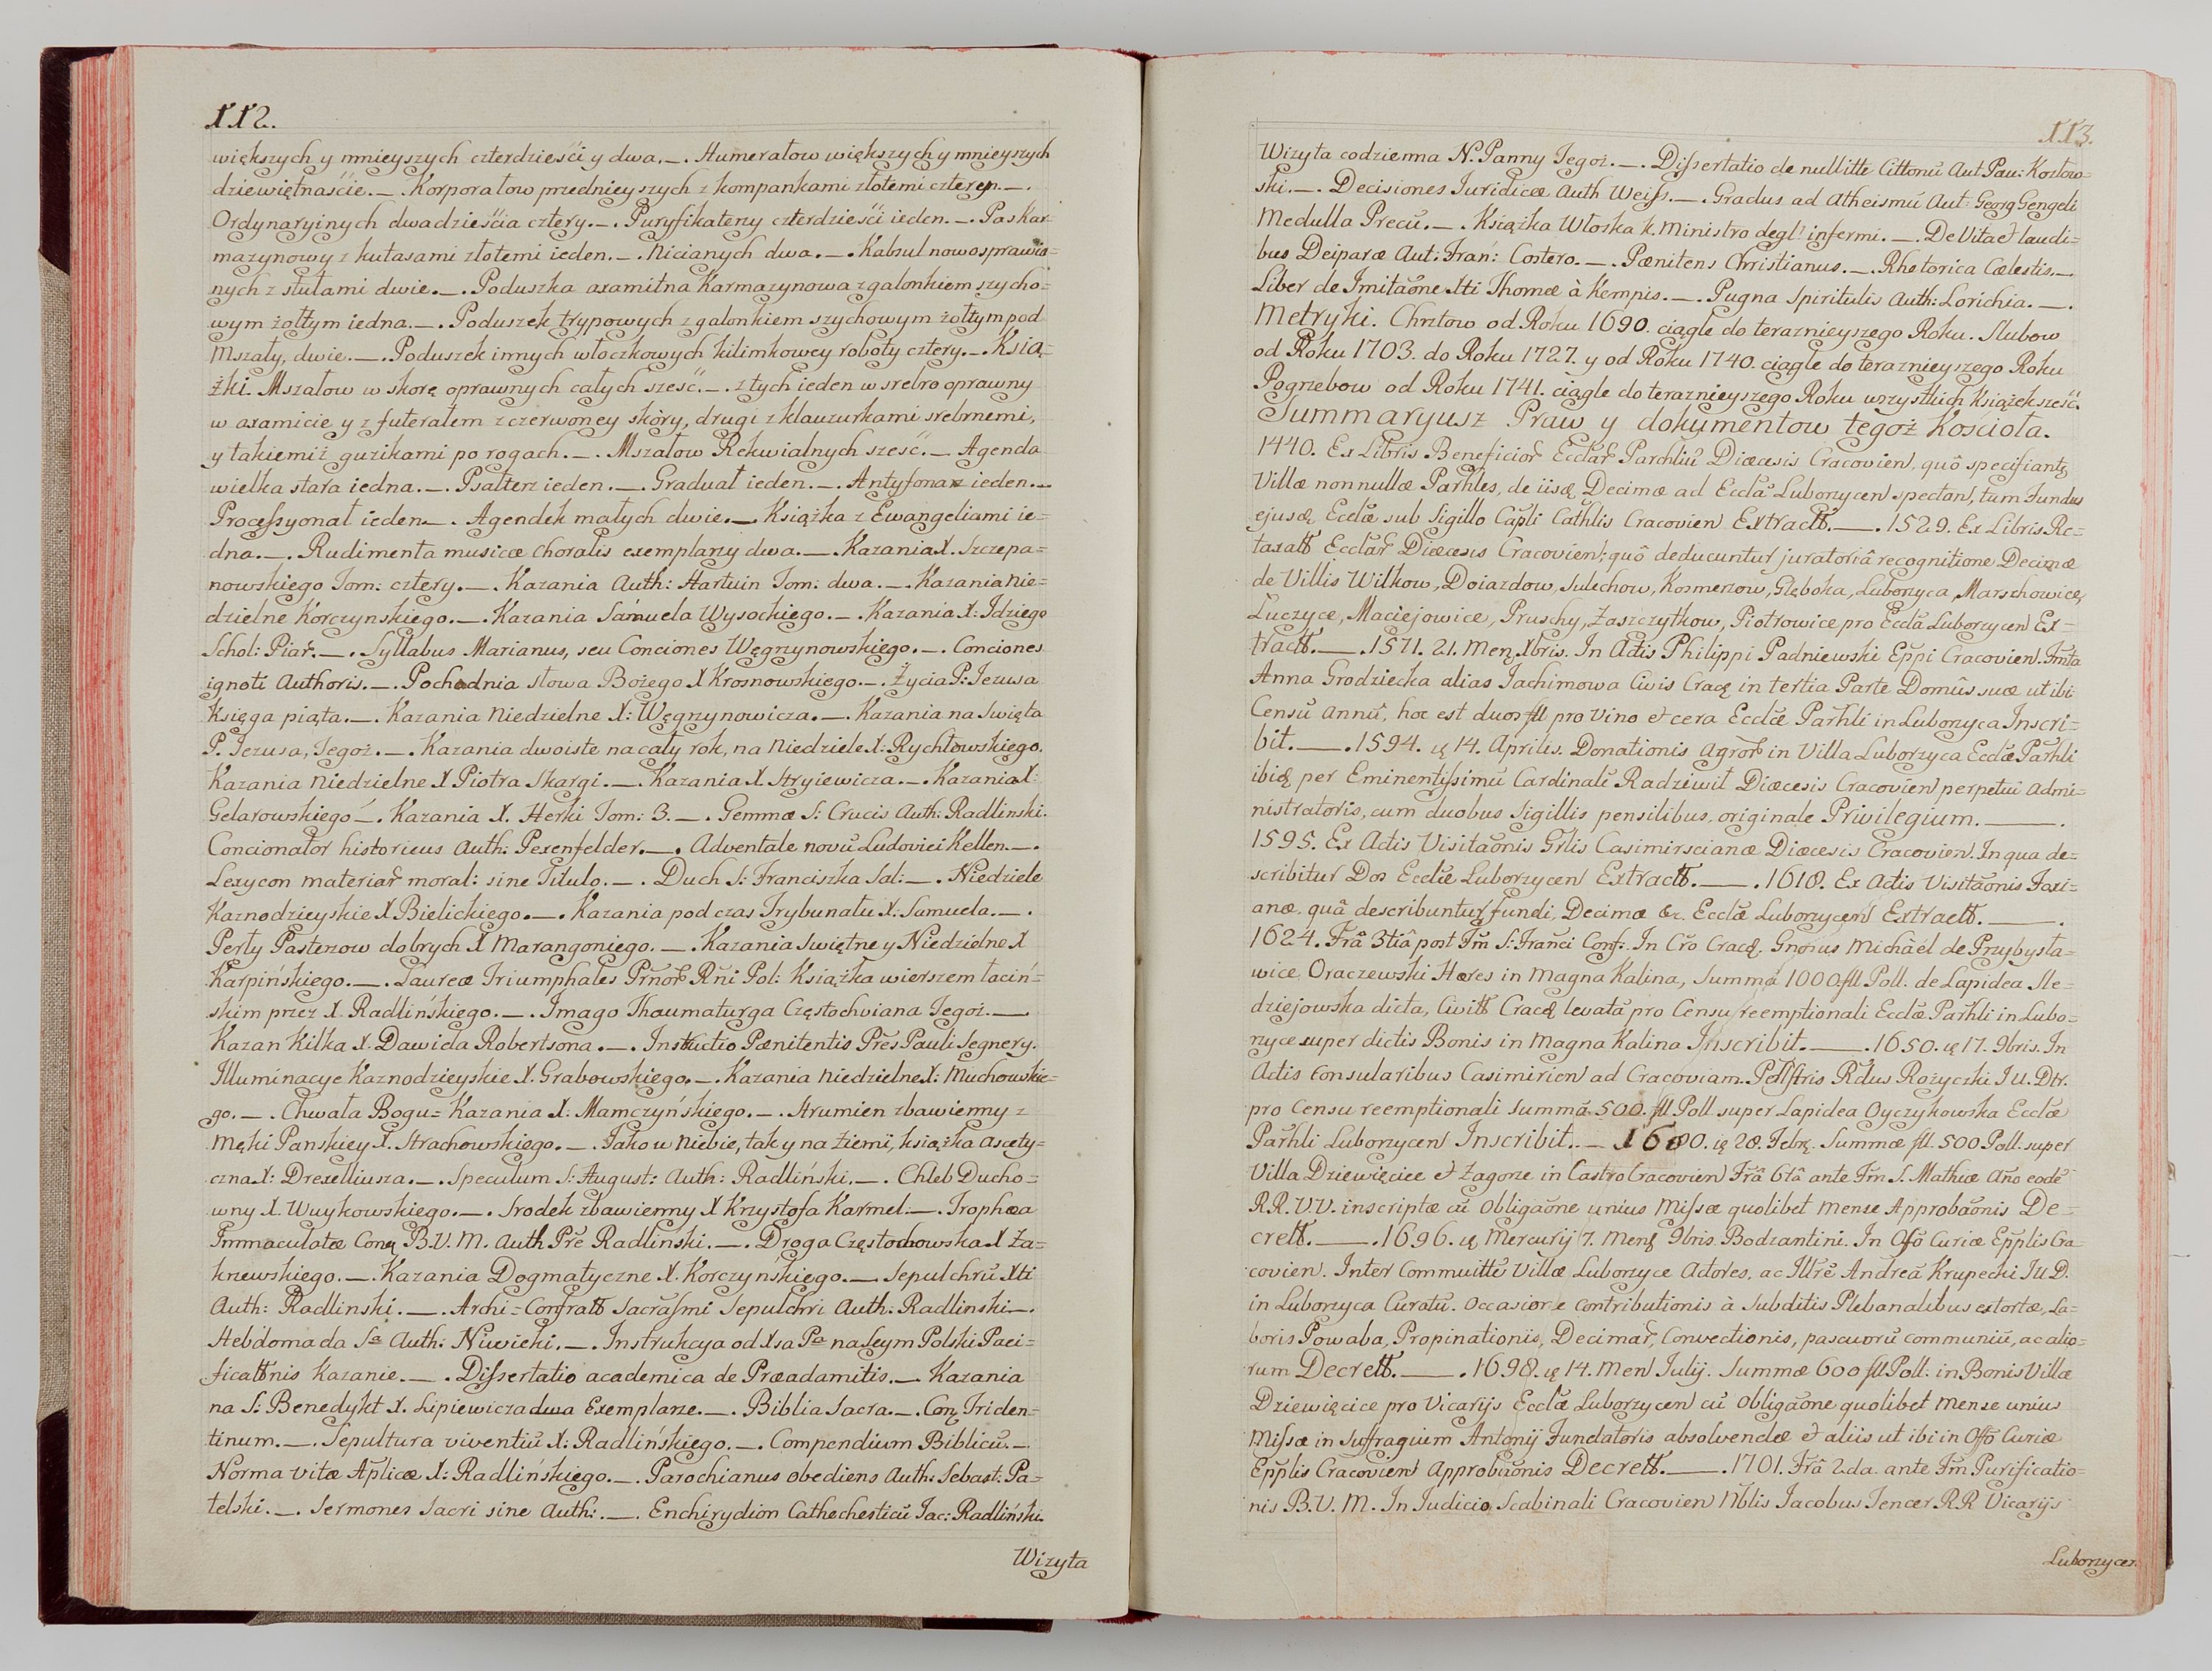 112.
większych y mnieyszych czterdzieści y dwa. _ . Humerałow większych y mnieyszych
dziewiętnaście. _ . Korporałow przednieyszych z kompankami złotemi cztery. _ .
Ordynaryinych dwadzieścia cztery. _ . Puryfikaterzy czterdzieści ieden. _ . Pas Kar-
mazynowy z kutasami złotemi ieden. _ . Nicianych dwa. _ . Kabsul nowosprawio=
nych z stułami dwie. _ . Poduszka axamitna Karmazynowa z galonkiem szycho=
wym żołtym iedna. _ . Poduszek trypowych z galonkiem szychowym żołtym pod
Mszały, dwie. _ . Poduszek innych włoczkowych kilimkowey roboty cztery. _ . Ksią=
żki. Mszałow w skorę oprawnych całych sześć. _ . z tych ieden w srebro oprawny
w axamicie y z futerałem z czerwoney skóry, drugi z klauzurkami srebrnemi,
y takiemiż guzikami po rogach. _ . Mszałow Rekwialnych sześć. _ Agenda
wielka stara iedna. _ . Psałterz ieden. _ . Graduał ieden. _ . Antyfonarz ieden. _
Processyonał ieden _ . Agendek małych dwie. _ Książka z Ewangeliami ie=
dna. _ . Rudimenta musicæ choralis exemplarzy dwa. _ . Kazania X. Szczepa=
nowskiego Tom: cztery. _ . Kazania Auth: Hartuin Tom: dwa. _ . Kazania Nie=
dzielne Korczynskiego. _ . Kazania Sámuela Wysockiego. _ . Kazania X: Idziego
Schol: Piar̃. _ . Syllabus Marianus, seu Conciones Węgrzynowskiego. _ . Conciones
ignoti Authoris. _ . Pochodnia słowa Bożego X Krosnowskiego. _ . Życia P: Jezusa
Księga piąta. _ . Kazania Niedzielne X: Węgrzynowicza. _ . Kazania na Swięta
P. Jezusa, Tegoż. _ . Kazania dwoiste na cały rok, na Niedziele X: Rychłowskiego.
Kazania Niedzielne X Piotra Skargi. _ . Kazania X Stryiewicza. _ . Kazania X:
Gelarowskiego _ . Kazania X. Herki Tom: 3. _ . Gemmæ S: Crucis Auth: Radlinski.
Concionator historicus Auth: Pexenfelder. _ . Adventale novũ Ludovici Kellen. _ .
Lexycon materiar̃ moral: sine Titulo. _ . Duch S: Franciszka Sal: _ . Niedziele
Kaznodzieyskie X Bielickiego. _ . Kazania pod czas Trybunału X: Samuela. _ .
Perły Pasterzow dobrych X Marangoniego. _ . Kazania Swiętne y Niedzielne X
Karpińskiego. _ . Laureæ Triumphales Prñor̃ Rñi Pol: Książka wierszem łaciń=
skim przez X. Radlińskiego. _ . Imago Thaumaturga Częstochviana Tegoż. _
Kazan Kilka X. Dawida Robertsona. _ . Instructio Pœnitentis Prẽs Pauli Segnery.
Illuminacye Kaznodzieyskie X. Grabowskiego. _ . Kazania Niedzielne X: Muchowskie=
go. _ . Chwała Bogu= Kazania X: Mamczyńskiego. _ . Strumien zbawienny z
Męki Panskiey X. Strachowskiego. _ . Jako w Niebie, tak y na Ziemi, książka Ascety=
czna X: Drexelliusza. _ . Speculum S: August: Auth: Radliński. _ . Chleb Ducho=
wny X. Wuykowskiego. _ . Srodek zbawienny X Krzysztofa Karmel: _ . Trophæa
Immaculatæ Conç B.V.M. Auth Prẽ Radlinski. _ . Droga Częstochowska X Za=
krzewskiego. _ . Kazania Dogmatyczne X. Korczyńskiego. _ . Sepulchrũ Xti
Auth: Radlinski. _ . Archi=Confratt Sacrasmi Sepulchri Auth: Radlinski _ .
Hebdomada Sa Auth: Niwicki. _ . Instrukcya od Xsa Pa na Seym Polski Paci=
ficattnis Kazanie. _ . Dissertatio academica de Præadamitis. _ . Kazania
na S: Benedykt X. Lipiewicza dwa Exemplarze. _ . Biblia Sacra. _ . Conç Triden=
tinum. _ . Sepultura viventiũ X: Radlińskiego. _ . Compendium Biblicũ. _
Norma vitæ Aplicæ X: Radlińskiego. _ . Parochianus obediens Auth: Sebast: Pa=
telski. _ . Sermones Sacri sine Auth: . _ . Enchirydion Cathechesticũ Jac: Radliński.
Wizyta
113.
Wizyta codzienna N. Panny Tegoż. _ . Dissertatio de nullitte Cittonũ Aut. Pau: Kozłow=
ski. _ . Decisiones Juridicæ Auth Weiss. _ . Gradus ad Atheismũ Aut: Georg Gengeli
Medulla Precũ. _ . Książka Włoska k. Ministro degl' infermi. _ . De Vita et laudi=
bus Deiparæ Aut: Fran: Costero. _ . Pœnitens Christianus. _ . Rhetorica Cœlestis. _
Liber de Imitãone Xti Thomæ à Kempis. _ . Pugna Spiritulis Auth: Lorichia. _ .
Metryki. Chrztow od Roku 1690. ciągle do teraznieyszego Roku. Slubow
od Roku 1703. do Roku 1727. y od Roku 1740. ciągle do teraznieyszego Roku
Pogrzebow od Roku 1741. ciągle do teraznieyszego Roku wszystkich Książek sześć.
Summaryusz Praw y dokumentow tegoż Kościoła.
1440. Ex Libris Beneficior̃ Ecclar̃ Parchliũ Diæcesis Cracovien, quô specifiantę
Villæ nonnullæ Parhles, de iisq Decimæ ad Ecclã Luborzycen spectan, tum Fundus
ejusq Ecclæ sub Sigillo Capli Cathlis Cracovien Extractt. _ . 1529. Ex Libris Re=
taxatt Ecclar̃ Diæcesis Cracovien, quô deducuntur juratoriâ recognitione Decimæ
de Villis Wilkow, Doiazdow, Sulechow, Kosmerzow, Głęboka, Luborzyca, Marszowice,
Luczyce, Maciejowice, Pruschy, Zaszczytkow, Piotrowice pro Ecclã Luborzycen Ex=
tractt. _ . 1571. 21. Menę Xbris. In Actis Philippi Padniewski Eppi Cracovien. Fmta
Anna Grodziecka alias Jachimowa Civis Cracę in tertia Parte Domûs suæ ut ibi
Censũ annũ, hoc est duos fll pro Vino et cera Ecclæ Parhli in Luborzyca Inscri=
bit. _ . 1594. ię 14. Aprilis. Donationis Agror̃ in Villa Luborzyca Ecclæ Parhli
ibiq per Eminentissimũ Cardinalẽ Radziwił Diæcesis Cracovien perpetui Admi=
nistratoris, cum duobus Sigillis pensilibus, originale Privilegium. _ .
1595. Ex Actis Visitãonis Grlis Casimirscianæ Diæcesis Cracovien. In qua de=
scribitur Dos Ecclæ Luborzycen Extractt. _ . 1618. Ex Actis Visitãonis Foxi=
anæ. quâ describuntur fundi, Decimæ &c. Ecclæ Luborzycen Extractt. _ .
1624. Frâ 3tiâ post Fm S: Franci Conf: In Cro Cracę. Gnosus Michàel de Przybysła=
wice Oraczewski Hæres in Magna Kalina, Summã 1000. fll Poll. de Lapidea Ste=
dziejowska dicta, Civitt Cracę levatã pro Censu reemptionali Ecclæ Parhli in Lubo=
rzyce super dictis Bonis in Magna Kalina Inscribit. _ . 1650. ię 17. 9bris. In
Actis Consularibus Casimirien ad Cracoviam. Rdus Rożyczki J U. Dtr.
pro Censu reemptionali Summã 500. fll Poll super Lapidea Oyczykowska Ecclæ
Parhli Luborzycen Inscribit. _ 1680. ię 28. Febrę. Summæ fll. 500 Poll. super
Villa Dziewięcice et Zagorze in Castro Cracovien Frâ 6tâ ante Fm S. Mathiæ Año eodẽ
R.R. V.V. inscriptæ cũ Obligãone unius Missæ quolibet mense Approbãonis De=
crett. _ . 1696. ię Mercurij 7. Mens 9bris. Bodzantini. In Offõ Curiæ Epplis Cra=
covien. Inter Commuittẽ Villæ Luborzyce Actores, ac Illrẽ Andreã Krupecki JUD.
in Luborzyca Curatũ. Occasione contributionis à Subditis Plebanalibus extortæ, La=
boris Powaba, Propinationis, Decimar̃, Convectionis, pascuorũ communiũ, ac alio=
rum Decrett. _ . 1698. ię 14. Men Julij. Summæ 600 fll Poll: in Bonis Villæ
Dziewięcice pro Vicarijs Ecclæ Luborzycen cũ Obligãone quolibet Mense unius
Missæ in Suffragium Antonij Fundatoris absolvendæ et aliis ut ibi in Offõ Curiæ
Epplis Cracovien Approbãonis Decrett. _ . 1701. Frâ 2da. ante Fm Purificatio=
nis B.V.M. In Judicio Scabinali Cracovien Nblis Jacobus Jencer R.R Vicarijs
Luborzycen.